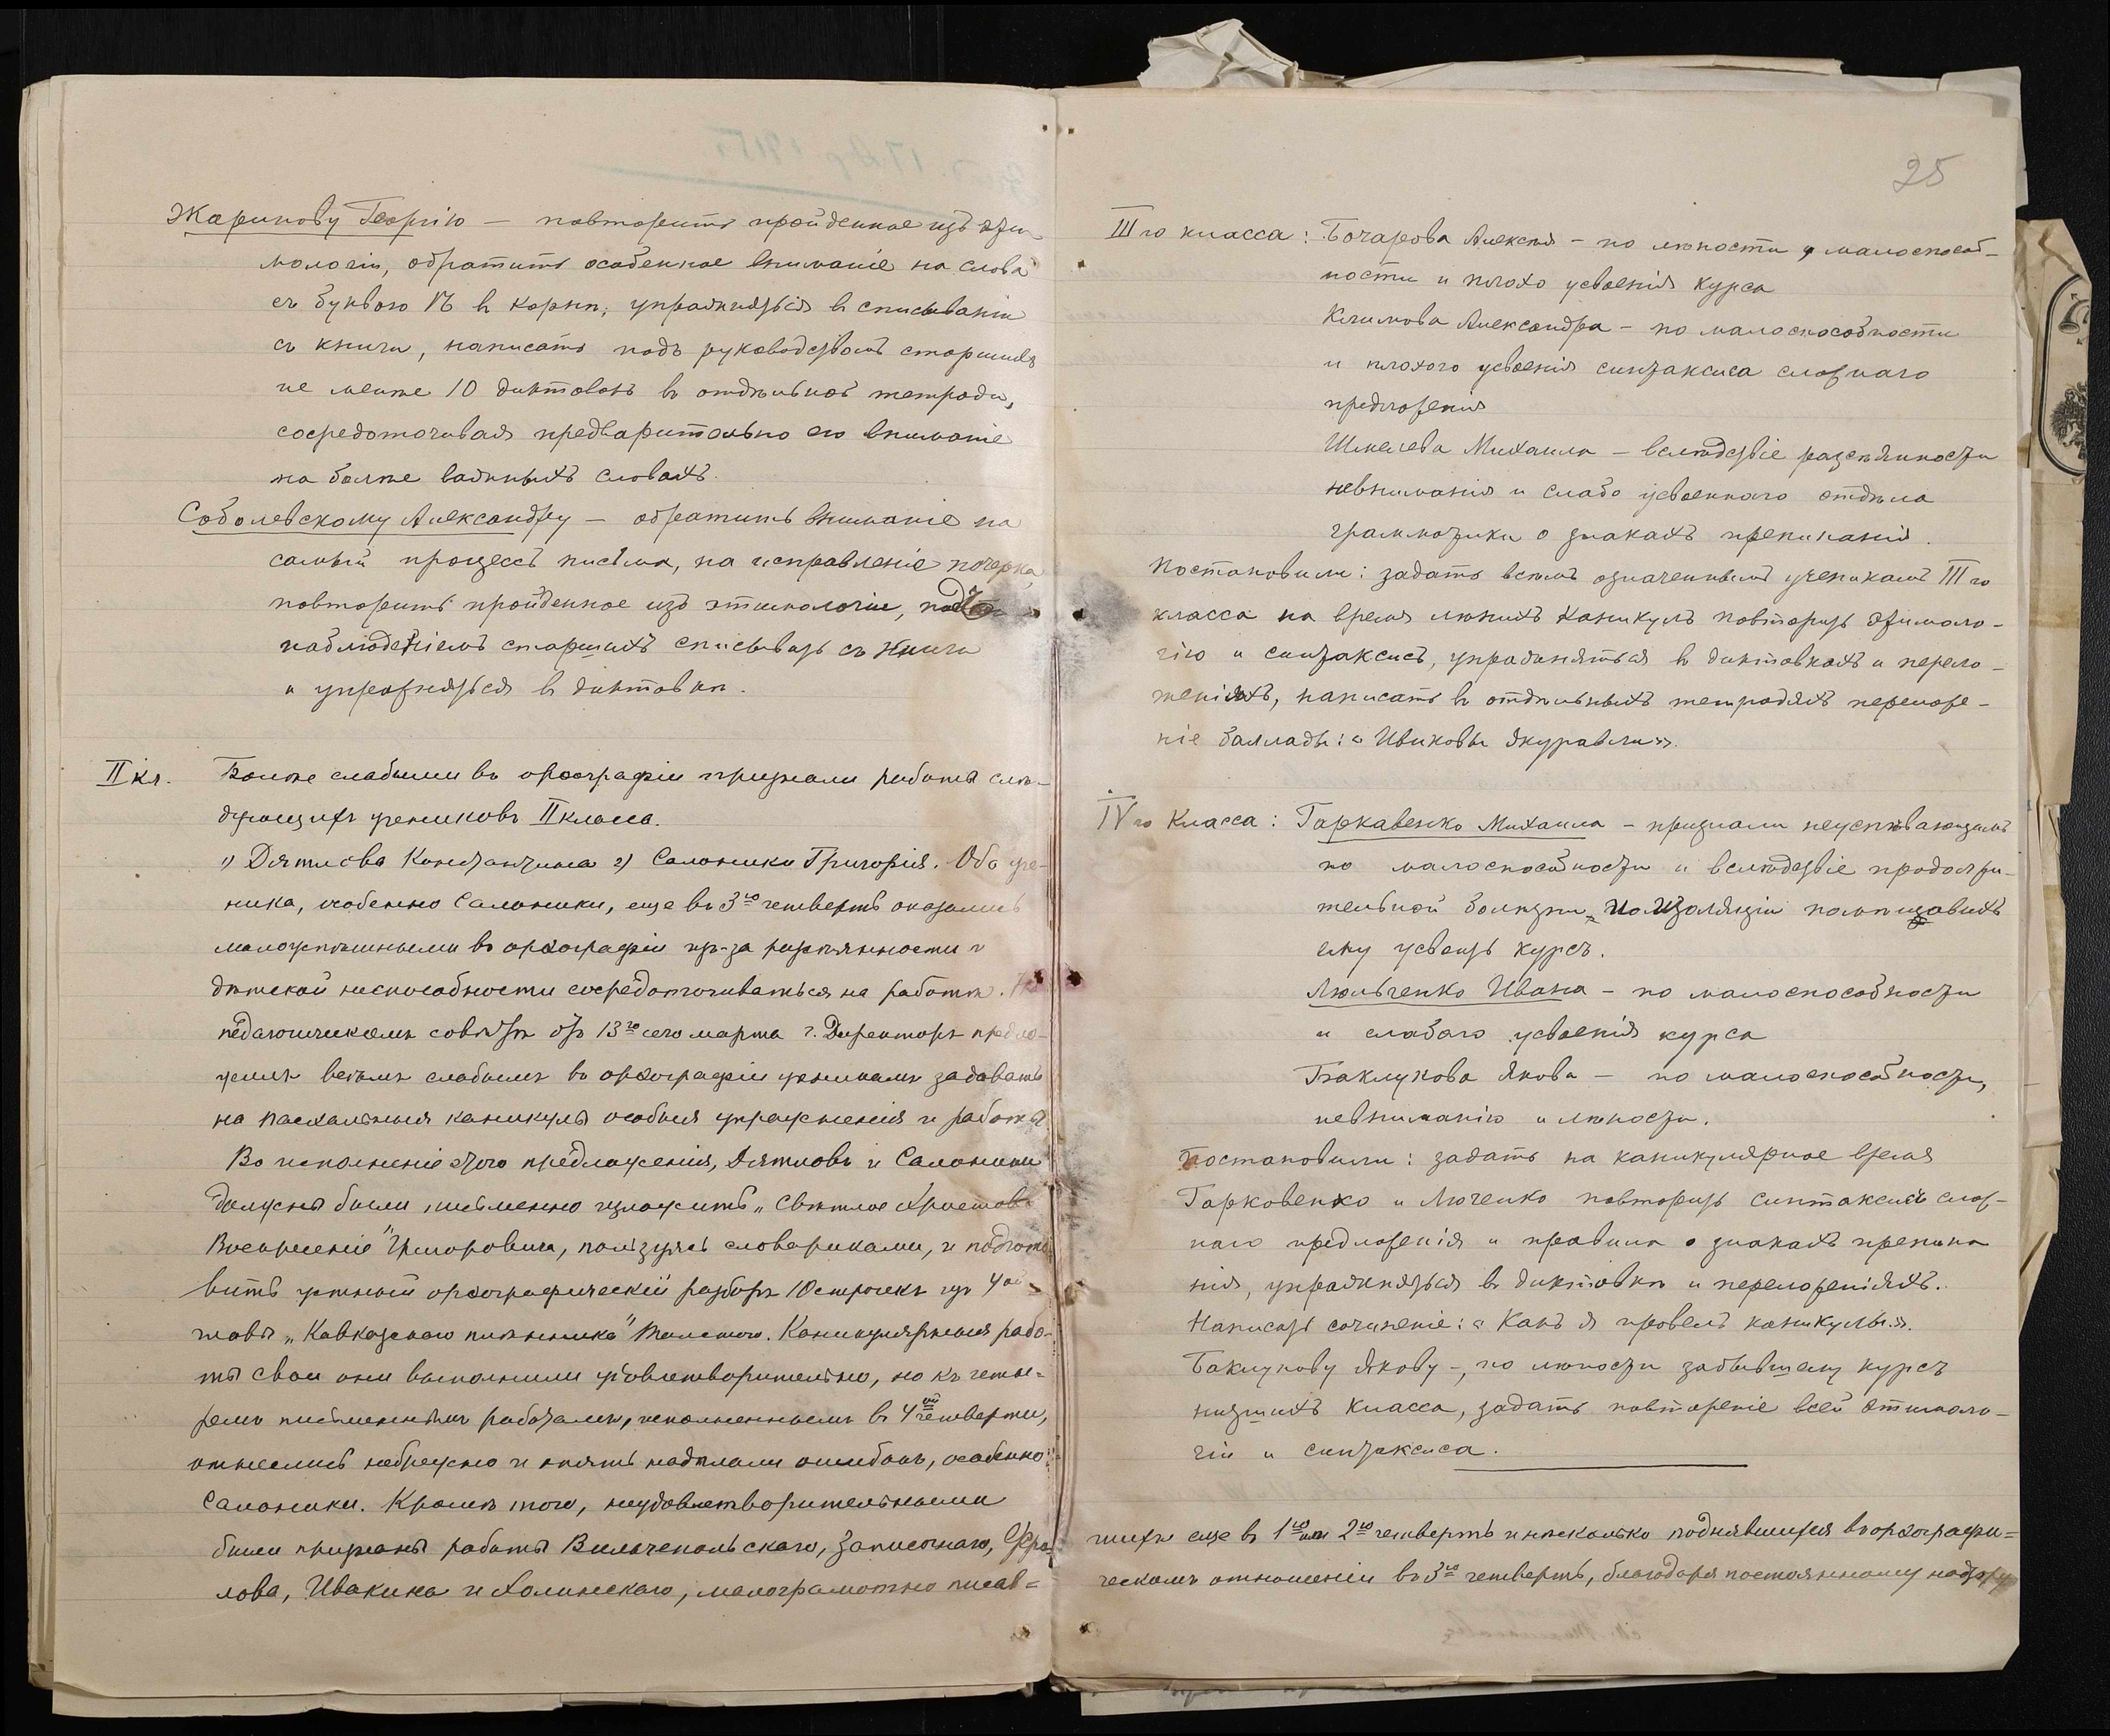 Жаринову Георгію — повторить пройденное изъ эти
мологіи, обратить особенное вниманіе на слова
съ буквою Ѣ въ корнѣ; упражняться въ списываніи
съ книги, написать подъ руководствомъ старшихъ
не менѣе 10 диктовокъ въ отдѣльной тетради,
сосредоточивая предварительно его вниманіе
на болѣе важныхъ словахъ.
Соболевскому Александру — обратить вниманіе на
самый процессъ письма, на исправленіе почерка,
повторить пройденное изъ этимологіи, подъ
наблюденіемъ старшихъ списывать съ книги
и упражняться въ диктовкѣ.
II кл. Болѣе слабыми въ орѳографіи признали работы слѣ-
дующихъ учениковъ II класса.
1) Дятлова Константина 2) Салоники Григорія. Оба уче-
ника, особенно Салоники, еще въ 3ю четверть оказались
малоуспѣшными въ орѳографіи изъ-за разсѣянности и
дѣтской неспособности сосредоточиваться на работѣ. На
педагогическомъ совѣтѣ отъ 13го сего марта г. Директоръ предло-
жилъ всѣмъ слабымъ въ орѳографіи ученикамъ задавать
на пасхальныя каникулы особыя упражненія и работы
Во исполненіе этого предложенія, Дятловъ и Салоники
должны были письменно изложить „Свѣтлое Христово
Воскресеніе" Григоровича, пользуясь словариками, и подгото
вить устный орѳографическій разборъ 10 строчекъ изъ 4ой
главы „Кавказскаго плѣнника" Толстого. Каникулярныя рабо-
ты свои они выполнили удовлетворительно, но къ четы-
ремъ письменнымъ работамъ, исполненнымъ въ 4ой четверти,
отнеслись небрежно и опять надѣлали ошибокъ, особенно
Салоники. Кромѣ того, неудовлетворительными
были признаны работы Вилочепольскаго, Записочнаго, Фро-
лова, Ивакина и Холинскаго, малограмотно писав-
25
III го класса: Бочарова Алексѣя — по лѣности и малоспособ-
ности и плохо усвоенія курса
Климова Александра — по малоспособности
и плохого усвоенія синтаксиса сложнаго
предложенія
Шмелева Михаила — вслѣдствіе разсѣянности
невниманія и слабо усвоеннаго отдѣла
грамматики о знакахъ препинанія.
Постановили: задать всѣмъ означеннымъ ученикамъ III го
класса на время лѣтнихъ каникулъ повторить этимоло-
гію и синтаксисъ, упражняться въ диктовкахъ и перело-
женіяхъ, написать въ отдѣльныхъ тетрадяхъ переложе-
ніе баллады: „Ивиковы журавли".
IV го класса: Гаркавенко Михаила — признали неуспѣвающимъ
по малоспособности и вслѣдствіе продолжи-
тельной болѣзни и изоляціи помѣшавшихъ
ему усвоить курсъ.
Люльченко Ивана — по малоспособности
и слабаго усвоенія курса
Баклукова Якова — по малоспособности,
невниманію и лѣности.
Постановили: задать на каникулярное время
Гарковенко и Люченко повторить синтаксисъ слож-
наго предложенія и правила о знакахъ препина
нія, упражняться въ диктовкѣ и переложеніяхъ.
Написать сочиненіе: „Какъ я провелъ каникулы".
Баклукову Якову —, по лѣности забывшему курсъ
низшихъ класса, задать повтореніе всей этимоло-
гіи и синтаксиса.
шихъ еще въ 1ю или 2ю четверть и нѣсколько поднявшихся въ орѳографи-
ческомъ отношеніи въ 3ю четверть, благодаря постоянному надзору